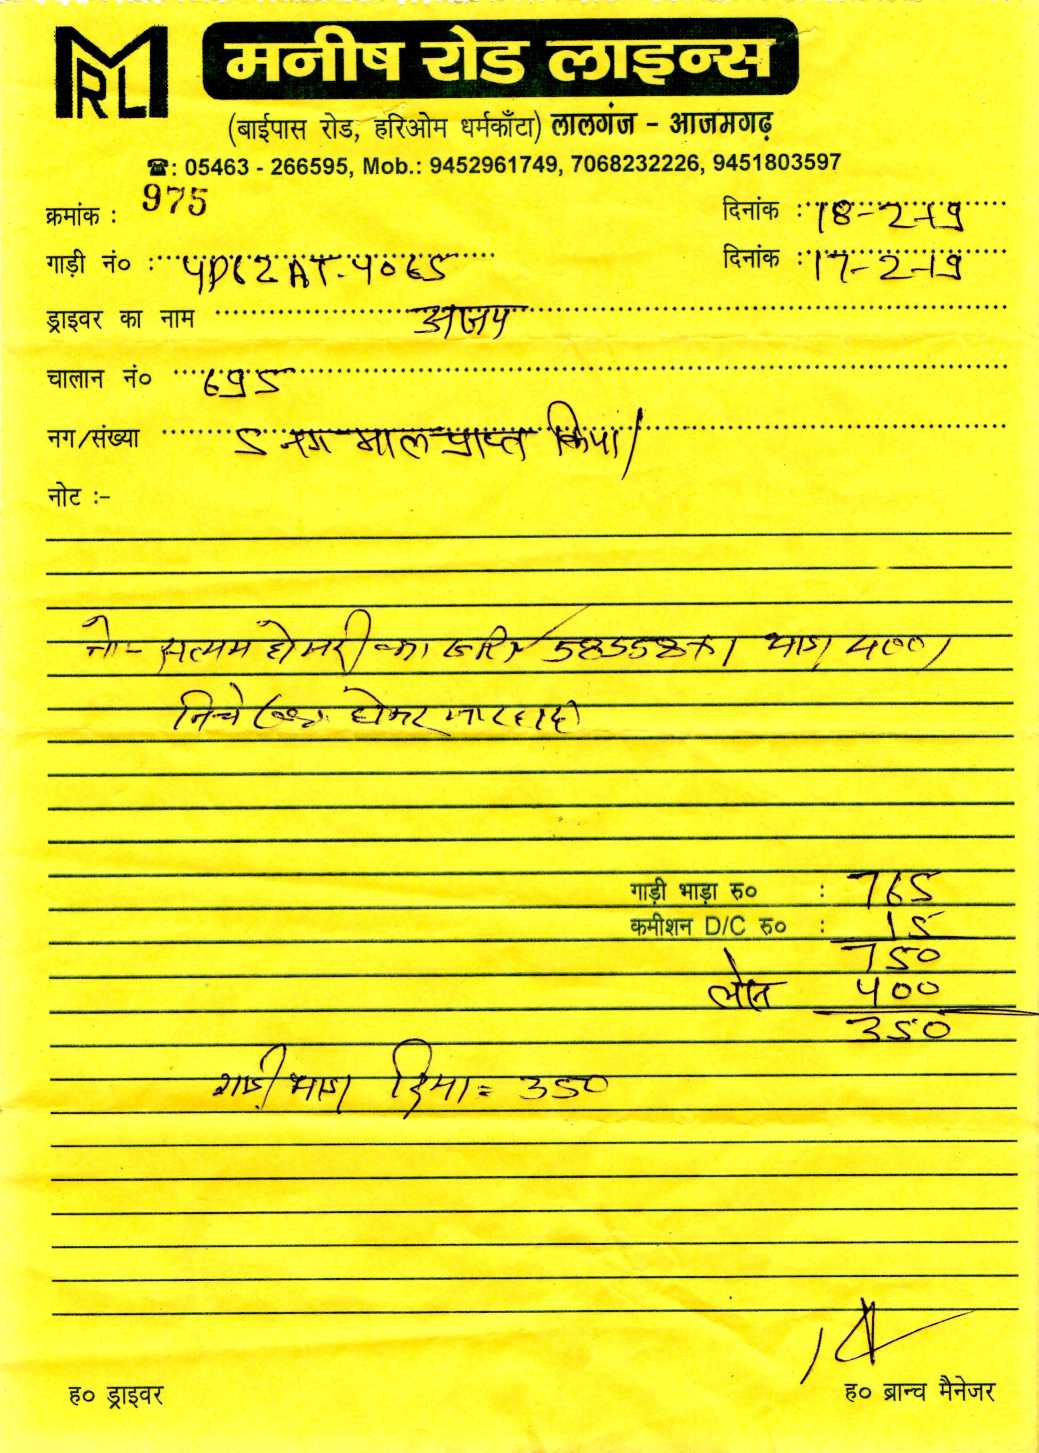 MRL
मनीष रोड लाइन्स
(बाईपास रोड, हरिओम धर्मकाँटा) लालगंज - आजमगढ़
☎: 05463 - 266595, Mob.: 9452961749, 7068232226, 9451803597
क्रमांक : 975 दिनांक : 18-2-19
गाड़ी नं० : UP62AT-4065 दिनांक : 17-2-19
ड्राइवर का नाम अजय
चालान नं० 695
नग/संख्या 5 नग माल प्राप्त किया/
नोट :-
नो- सत्यम का भाड़ा 400/
गाड़ी भाड़ा रु० : 765
कमीशन D/C रु० : 15
750
लोन 400
350
गाड़ी भाड़ा दिया = 350
ह० ड्राइवर ह० ब्रान्च मैनेजर